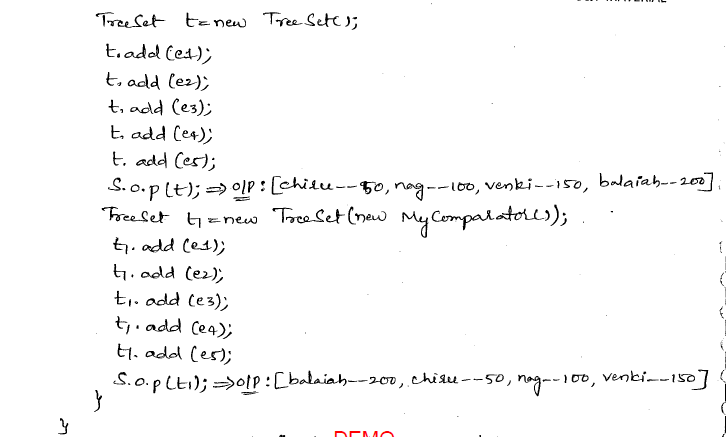 TreeSet t = new TreeSet();
t.add(e1);
t.add(e2);
t.add(e3);
t.add(e4);
t.add(e5);
S.o.p(t); ⇒ o/p : [chiru--50, nag--100, venki--150, balaiah--200]
TreeSet t1 = new TreeSet(new MyComparator());
t1.add(e1);
t1.add(e2);
t1.add(e3);
t1.add(e4);
t1.add(e5);
S.o.p(t1); ⇒ o/p : [balaiah--200, chiru--50, nag--100, venki--150]
}
}
DEMO